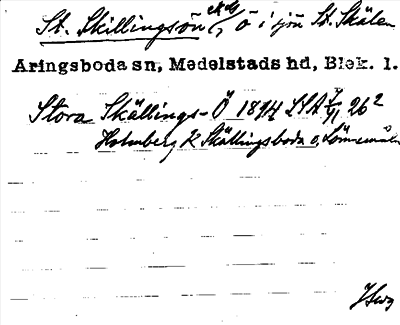 St. Skillingsön ö i sjön St. Skälen
Aringsboda sn, Medelstads hd, Blek. l.
Stora Skällings-Ö 1894 LSA 26²
Holmberg K Skällingsboda o, Lönnemåla